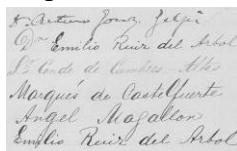 Dn Arturo Gomez
Dn Emilio Ruiz del Arbol
Sr Conde de Cumbres Altas
Marqués de Castelfuerte
Angel Magallon
Emilio Ruiz del Arbol